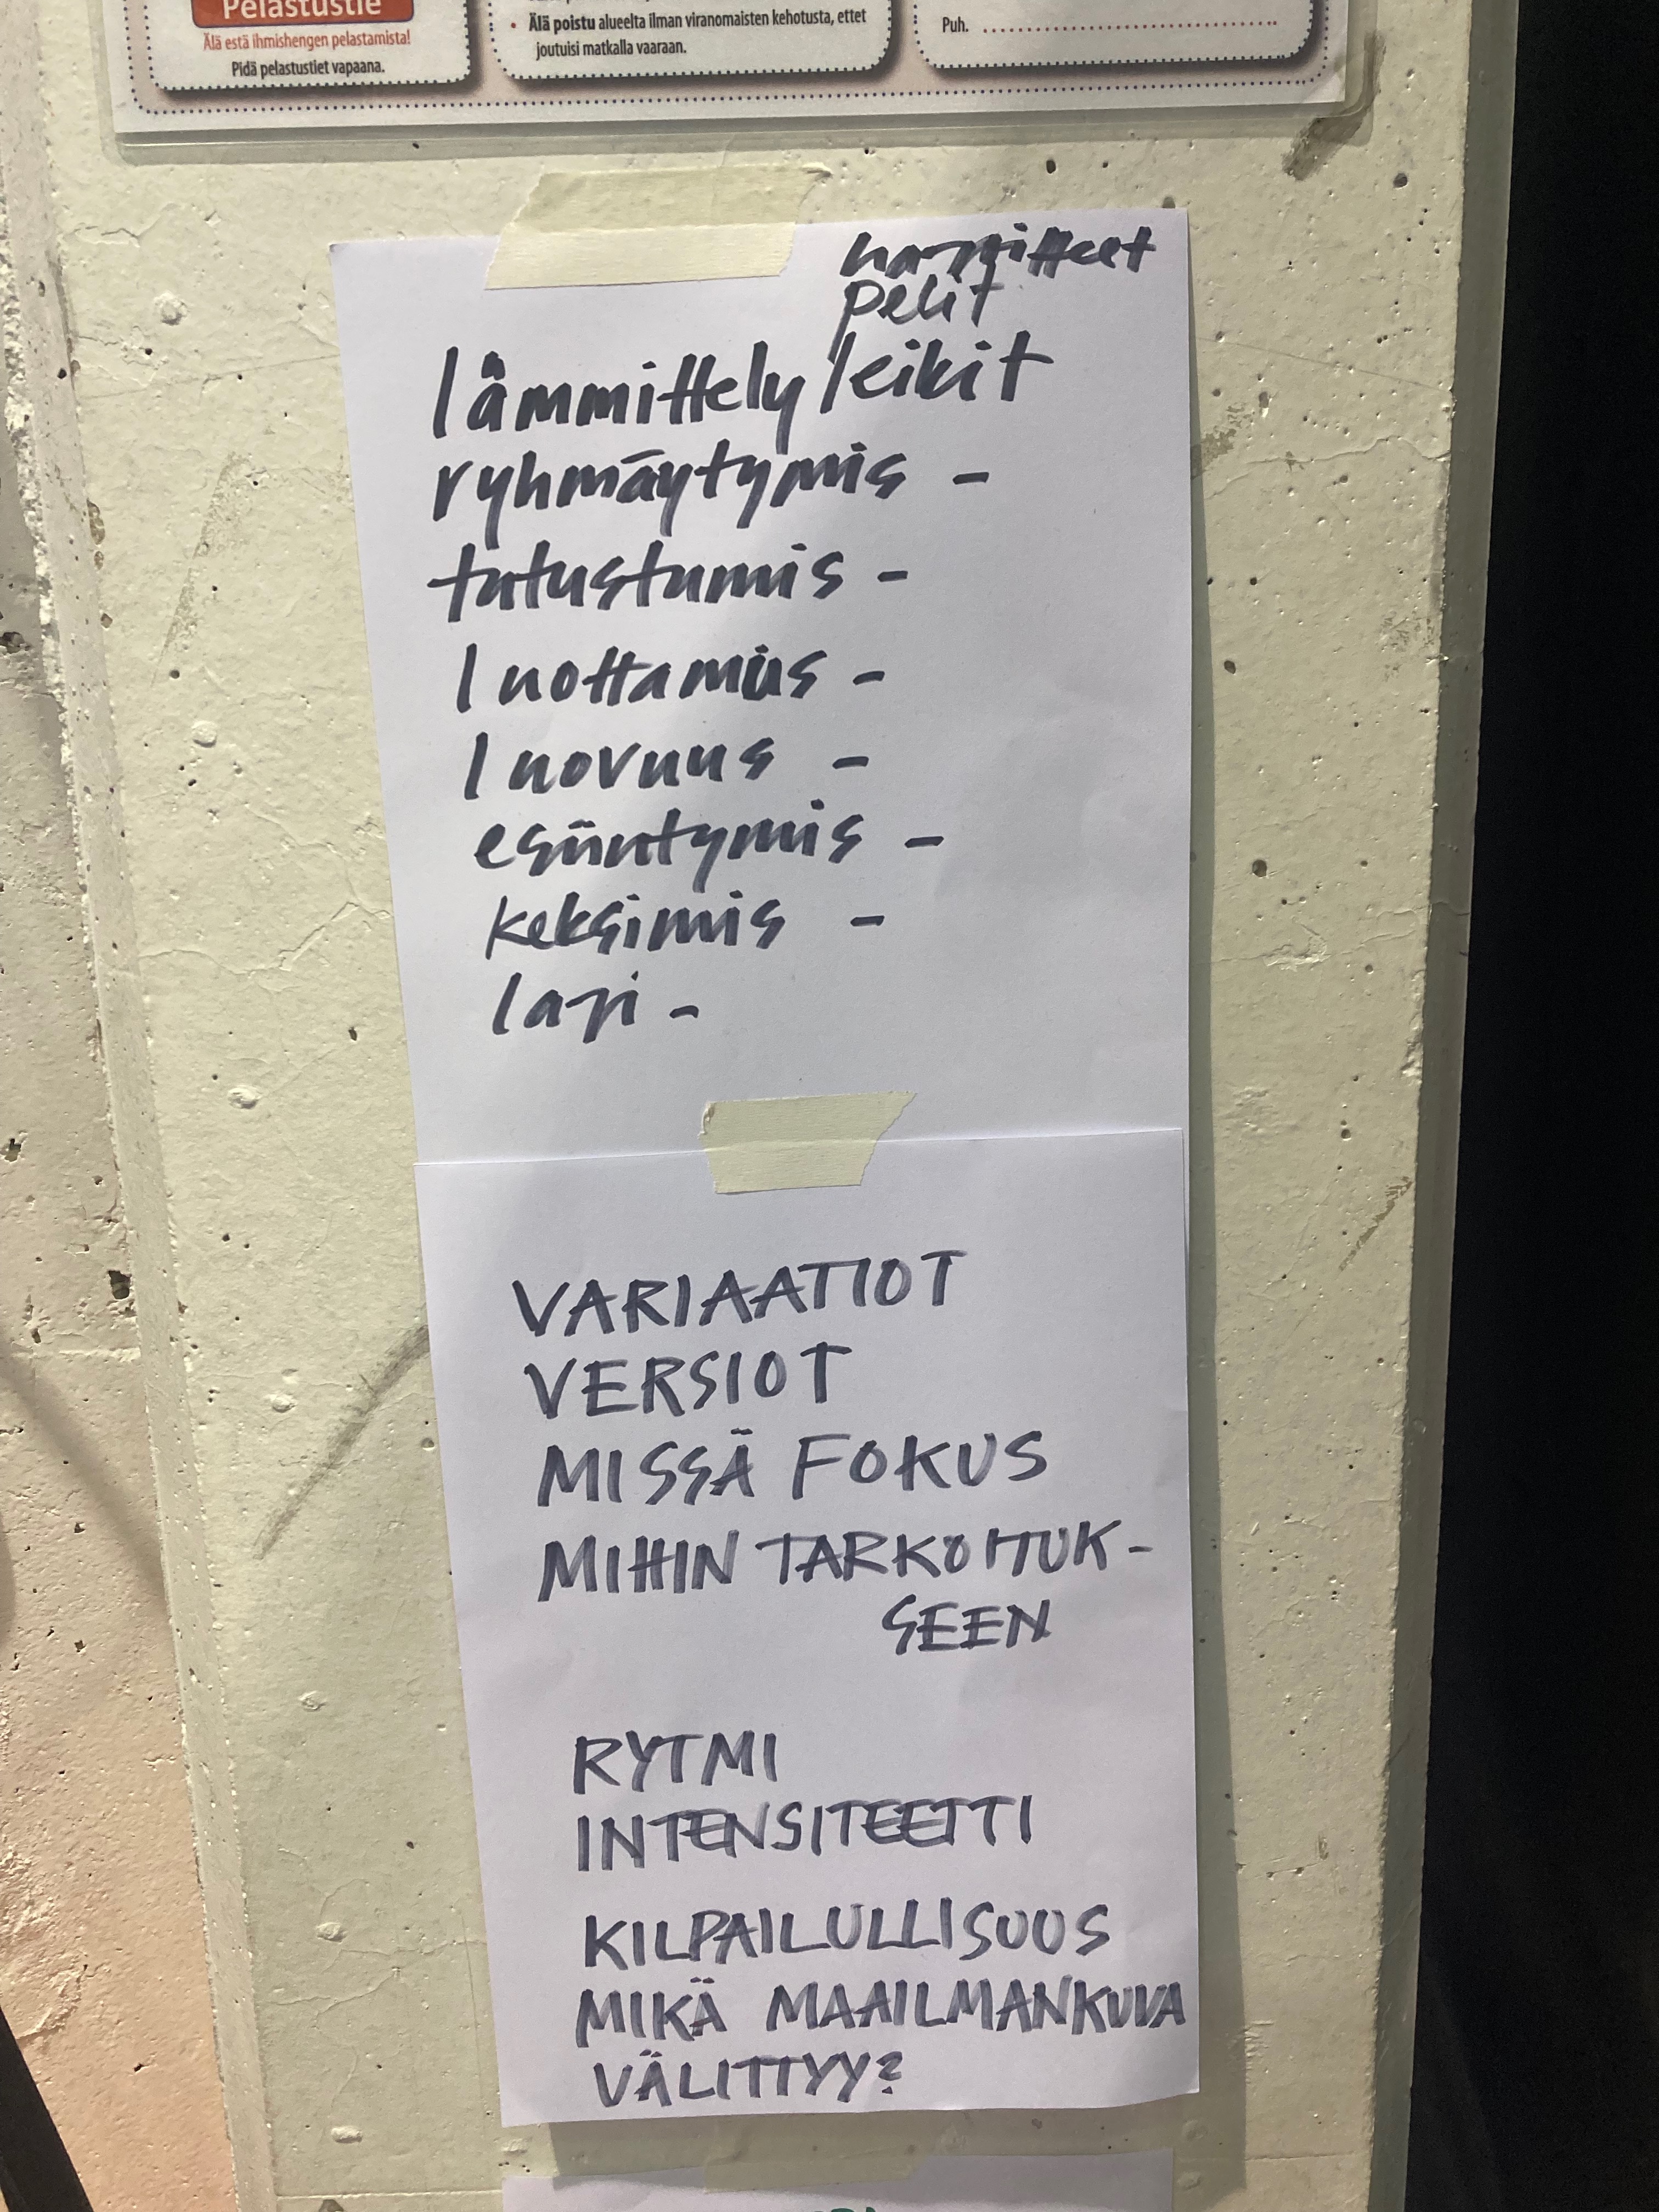 Pelastustie
Älä estä ihmishengen pelastamista!
Pidä pelastustiet vapaana.
• Älä poistu alueelta ilman viranomaisten kehotusta, ettet
joutuisi matkalla vaaraan.
Puh.
harjoitteet
pelit
lämmittely leikit
ryhmäytymis -
tutustumis -
luottamus -
luovuus -
esiintymis -
keksimis -
laji -
VARIAATIOT
VERSIOT
MISSÄ FOKUS
MIHIN TARKOITUK-
SEEN
RYTMI
INTENSITEETTI
KILPAILULLISUUS
MIKÄ MAAILMANKUVA
VÄLITTYY?